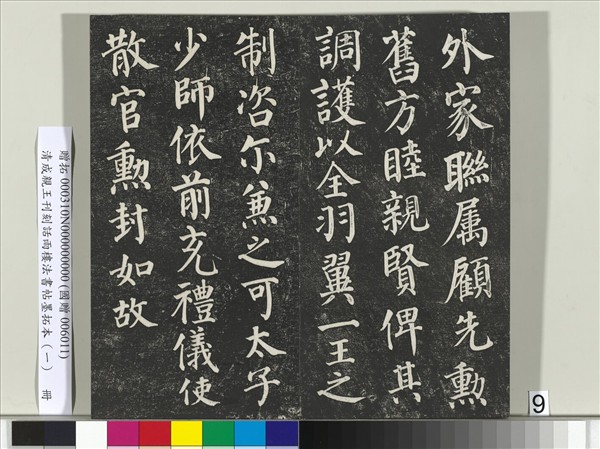 外家聯属顧先勲
舊方睦親賢俾其
調護以全羽翼一王之
制咨尔兼之可太子
少師依前充禮儀使
散官勲封如故
贈拓000310N000000000(國贈006011)
清成親王刊刻話雨樓法書帖墨拓本(一) 冊
9